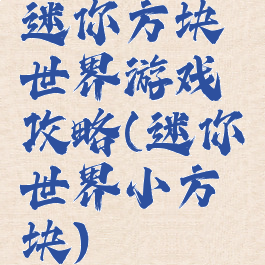 迷你方块
世界游戏
攻略(迷你
世界小方
块)